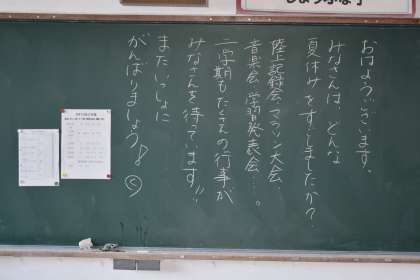 おはようございます。
みなさんは、どんな
夏休みをすごしましたか？
陸上記録会、マラソン大会、
音楽会、学習発表会…。
二学期もたくさんの行事が
みなさんを待っています!!
またいっしょに
がんばりましょう！